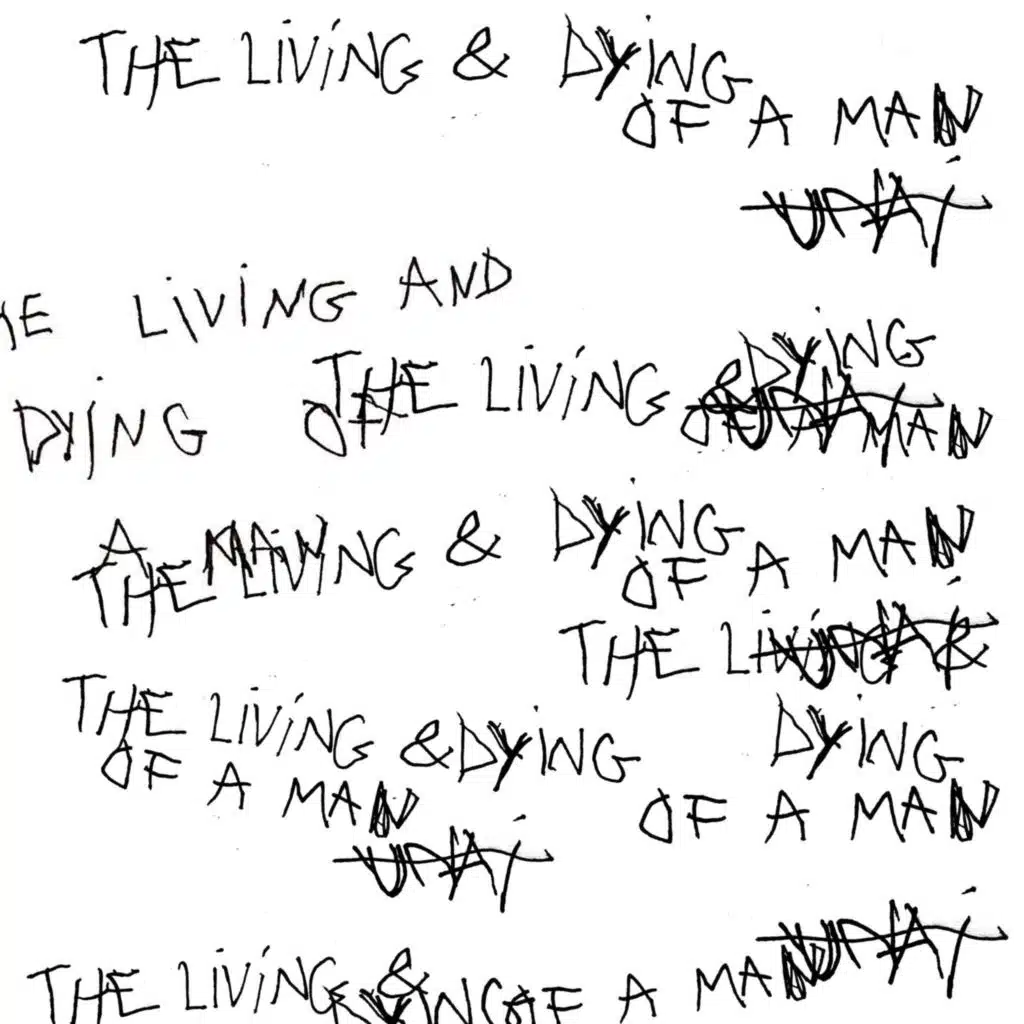 THE LiViNG & DYiNG
OF A MAN
LiViNG AND
THE LiViNG & DYiNG
DYiNG OF
OF A MAN
A MAN
THE LiViNG & DYiNG
OF A MAN
THE LiViNG &
THE LiViNG & DYiNG
DYiNG
OF A MAN
OF A MAN
THE LiViNG &
OF A MAN